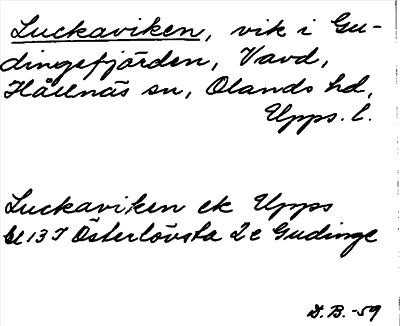 Luckaviken, vik i Gu-
dingefjärden, Vavd,
Hållnäs sn, Olands hd,
Upps. l.
Luckaviken ek Upps
bl 13 I Österlövsta 2 e Gudinge
D. B. -59